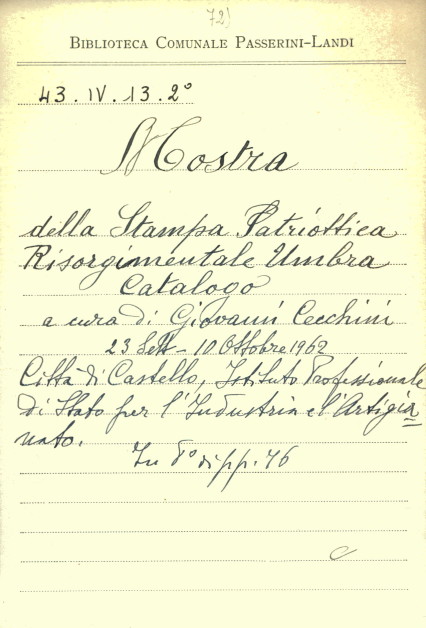 72)
BIBLIOTECA COMUNALE PASSERINI-LANDI
43.IV.13.2º
Mostra
della Stampa Patriottica
Risorgimentale Umbra
Catalogo
a cura di Giovanni Cecchini
23 Sett - 10 Ottobre 1962
Città di Castello, Istituto Professionale
di Stato per l'Industria e l'Artigia
nato.
In 8º di pp. 76